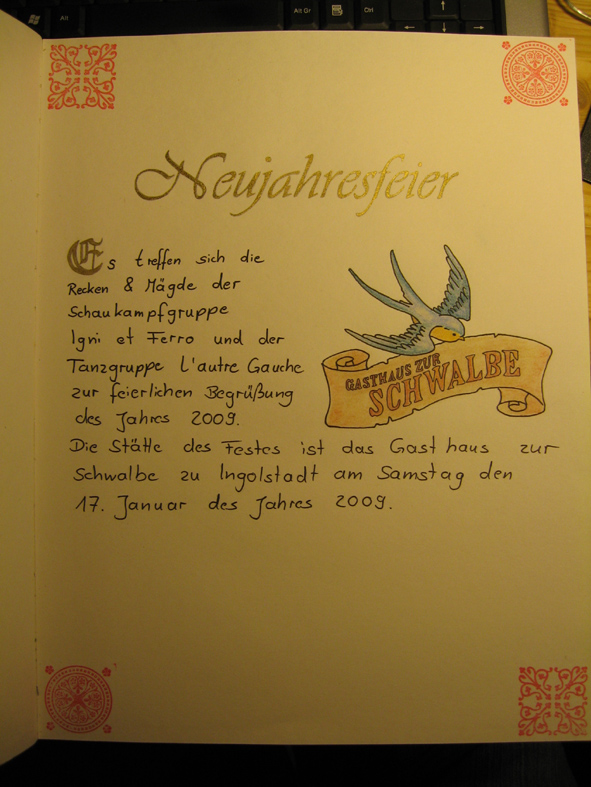 Alt
Alt Gr
Strg
Neujahresfeier
Es treffen sich die
Recken & Mägde der
Schaukampfgruppe
Igni et Ferro und der
Tanzgruppe L'autre Gauche
zur feierlichen Begrüßung
des Jahres 2009.
GASTHAUS ZUR
SCHWALBE
Die Stätte des Festes ist das Gasthaus zur
Schwalbe zu Ingolstadt am Samstag den
17. Januar des Jahres 2009.